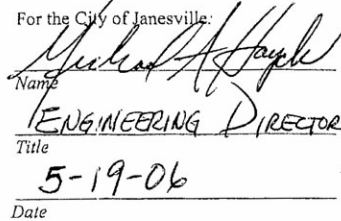 For the City of Janesville:
Michael A Hayek
Name
ENGINEERING DIRECTOR
Title
5-19-06
Date